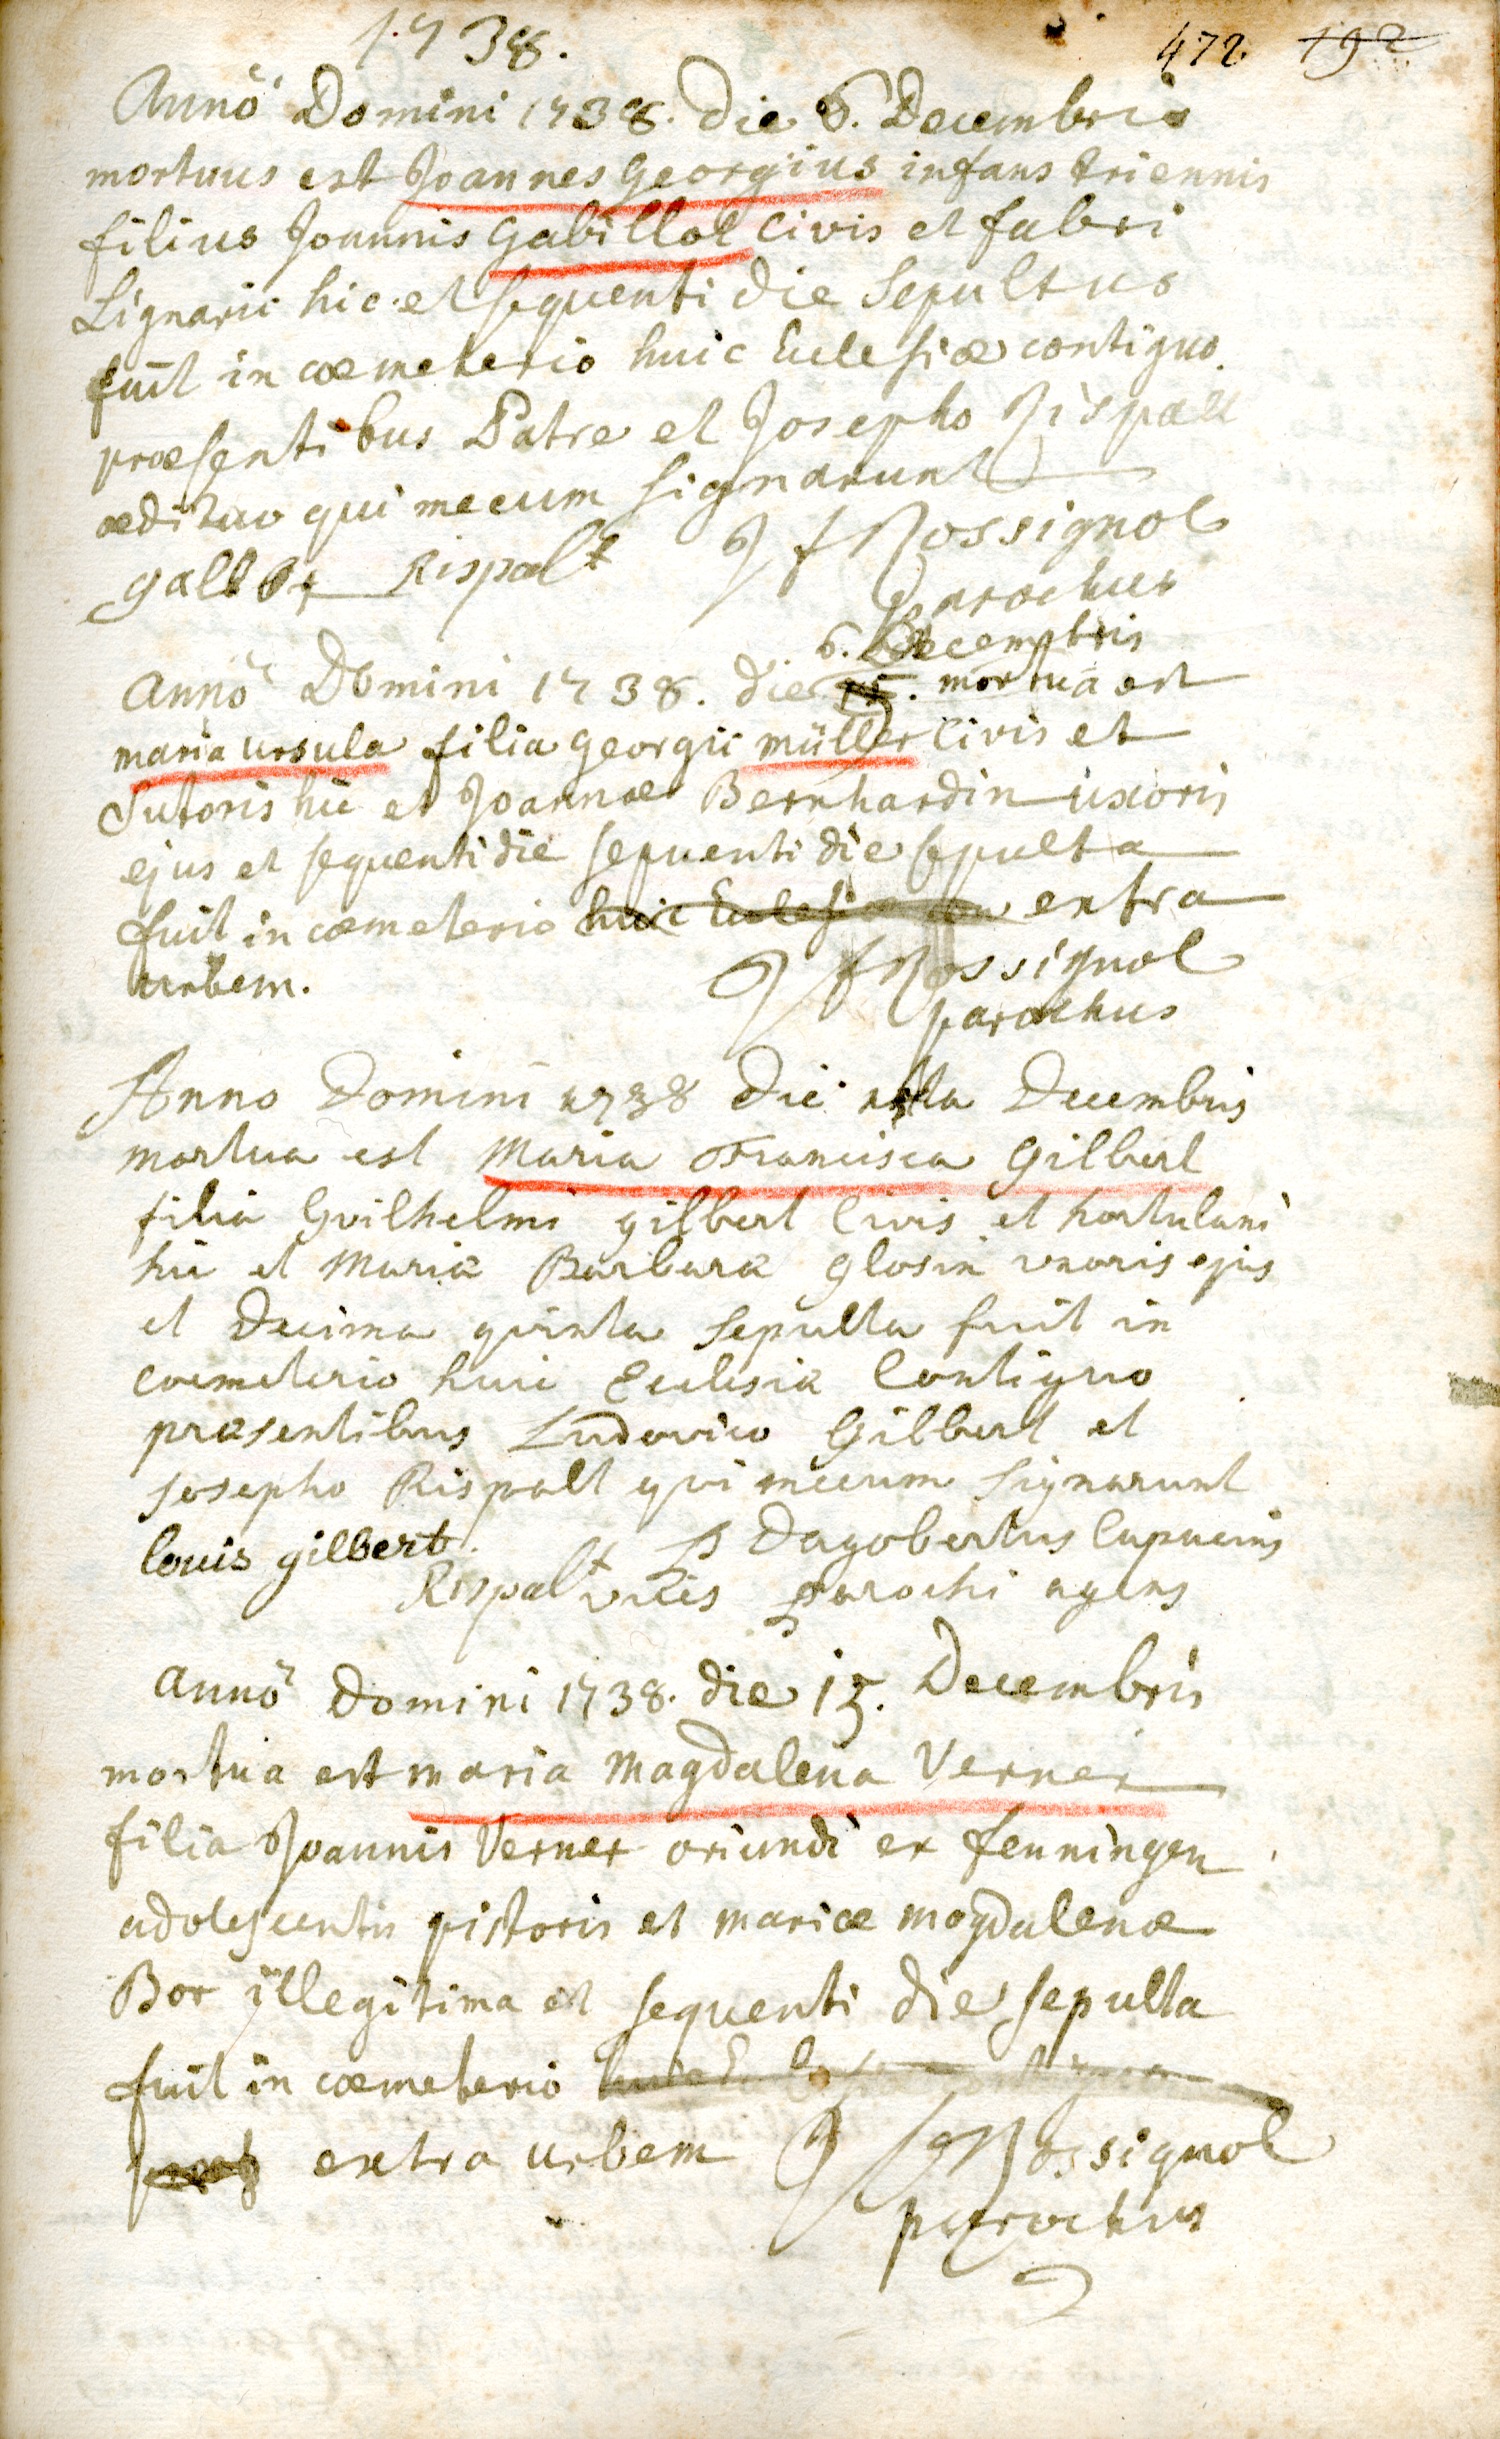 1738.
472 192
Anno Domini 1738. die 6. Decembris
mortuus est Joannes Georgius infans triennis
filius Joannis Gabillot Civis et fabri
Lignarii hic et sequenti die Sepultus
fuit in cœmeterio huic Eclesiæ contiguo.
præsentibus Patre et Josepho Rispalt
ædituo qui mecum Signarunt
J f Rossignol
Rispalt
Parochus
6. Decembris
Anno Domini 1738. die 15. mortua est
maria ursula filia georgii müller Civis et
Sutoris hic et Joannæ Bernhardin uxoris
ejus et sequenti die sequenti die sepulta
fuit in cœmeterio huic Eclesiæ extra
urbem. J f Rossignol
parochus
Anno Domini 1738 die Decembris
mortua est Maria Francisca Gilbert
filia Guilhelmi gilbert Civis et hortulani
hic et Mariæ Barbaræ Glosin uxoris ejus
et Decima quinta Sepulta fuit in
Coemeterio huic Ecclesiæ Contiguo
præsentibus Ludovico Gilbert et
Josepho Rispalt qui mecum Signarunt
louis gilbert. P Dagobertus Capucinus
Rispalt vices Parochi agens
anno Domini 1738. die 15. Decembris
mortua est maria Magdalena Verner
filia Joannis Verner oriundi ex fenningen
adolescentis pistoris et mariæ magdalenæ
Bor illegitima et sequenti die sepulta
fuit in cœmeterio
extra urbem J f Rossignol
parochus